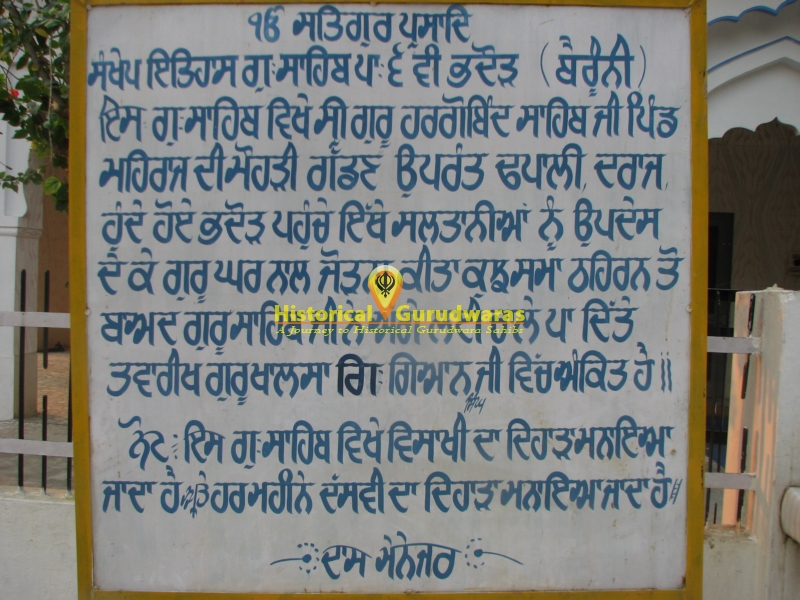 ੴ ਸਤਿਗੁਰ ਪ੍ਰਸਾਦਿ
ਸੰਖੇਪ ਇਤਿਹਾਸ ਗੁ:ਸਾਹਿਬ ਪਾ: ੬ ਵੀ ਭਦੌੜ (ਬੈਰੂੰਨੀ)
ਇਸ ਗੁ:ਸਾਹਿਬ ਵਿਖੇ ਸ੍ਰੀ ਗੁਰੂ ਹਰਗੋਬਿੰਦ ਸਾਹਿਬ ਜੀ ਪਿੰਡ
ਮਹਿਰਾਜ ਦੀ ਮੋਹੜੀ ਗੱਡਣ ਉਪਰੰਤ ਢਪਾਲੀ, ਦਰਾਜ,
ਹੁੰਦੇ ਹੋਏ ਭਦੌੜ ਪਹੁੰਚੇ ਇੱਥੇ ਸੁਲਤਾਨੀਆਂ ਨੂੰ ਉਪਦੇਸ
ਦੇ ਕੇ ਗੁਰੂ ਘਰ ਨਾਲ ਕੀਤਾ ਕੁਝ ਸਮਾਂ ਠਹਿਰਨ ਤੋਂ
ਬਾਅਦ ਗੁਰੂ ਪਾ ਦਿੱਤੇ
ਤਵਾਰੀਖ ਗੁਰੂ ਖਾਲਸਾ ਗਿ: ਗਿਆਨ ਜੀ ਵਿੱਚ ਅੰਕਿਤ ਹੈ॥
ਸਿੰਘ
ਨੋਟ: ਇਸ ਗੁ:ਸਾਹਿਬ ਵਿਖੇ ਵਿਸਾਖੀ ਦਾ ਦਿਹਾੜਾ ਮਨਾਇਆ
ਜਾਂਦਾ ਹੈ ਅਤੇ ਹਰ ਮਹੀਨੇ ਦੱਸਵੀ ਦਾ ਦਿਹਾੜਾ ਮਨਾਇਆ ਜਾਂਦਾ ਹੈ॥
ਦਾਸ ਮੈਨੇਜਰ
Historical Gurudwaras
A Journey to Historical Gurudwara Sahibs